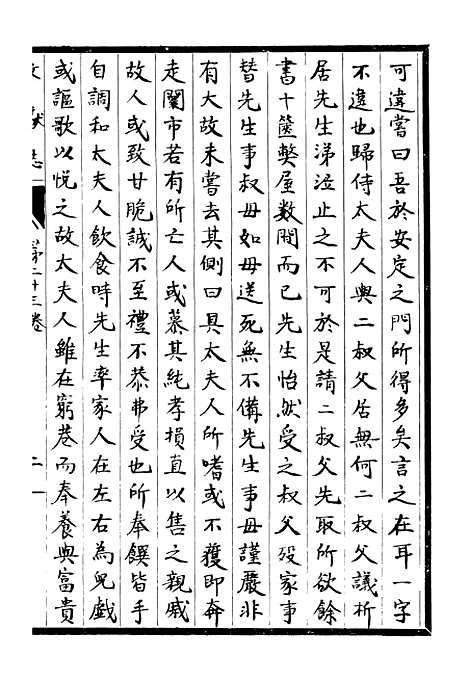 可違嘗曰吾於安定之門所得多矣言之在耳一字
不違也歸侍太夫人與二叔父居無何二叔父議析
居先生涕泣止之不可於是請二叔父先取所欲餘
書十篋獘屋数間而已先生怡然受之叔父殁家事
替先生事叔母如母送死無不備先生事母謹嚴非
有大故未嘗去其側曰具太夫人所嗜或不獲即奔
走闤市若有所亡人或慕其純孝損直以售之親戚
故人或致甘脆誠不至禮不恭弗受也所奉饌皆手
自調和太夫人飲食時先生率家人在左右為兒戲
或謳歌以悦之故太夫人雖在窮巷而奉養與富貴
文獻志
第二十三卷
二